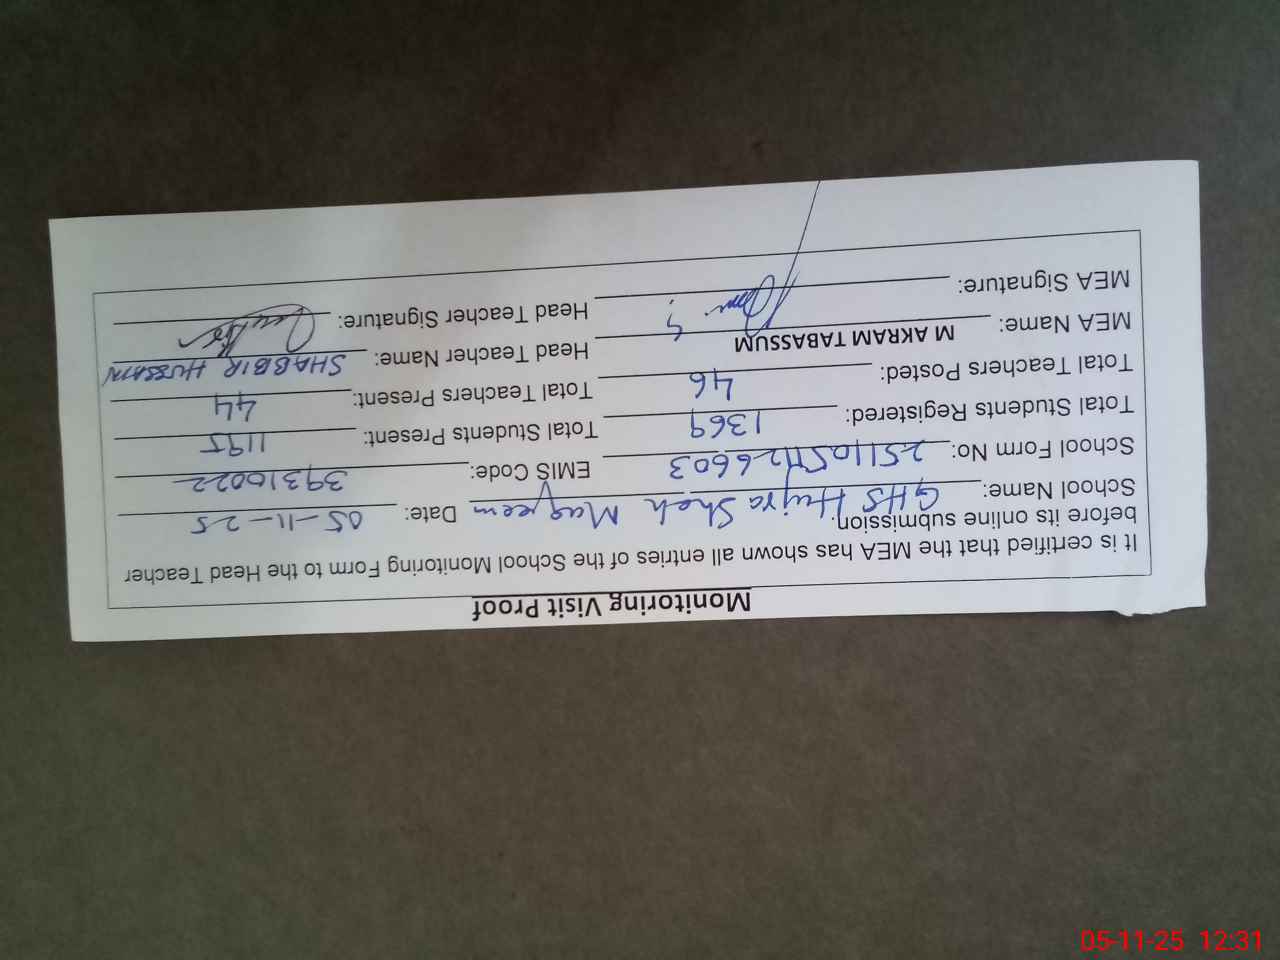 Monitoring Visit Proof
It is certified that the MEA has shown all entries of the School Monitoring Form to the Head Teacher
before its online submission.
School Name: GHS Hujra Shah Muqeem Date: 05-11-25
School Form No: 251105126603 EMIS Code: 39310022
Total Students Registered: 1369 Total Students Present: 1195
Total Teachers Posted: 46 Total Teachers Present: 44
MEA Name: M AKRAM TABASSUM Head Teacher Name: SHABBIR HUSSAIN
MEA Signature: Head Teacher Signature:
05-11-25 12:31